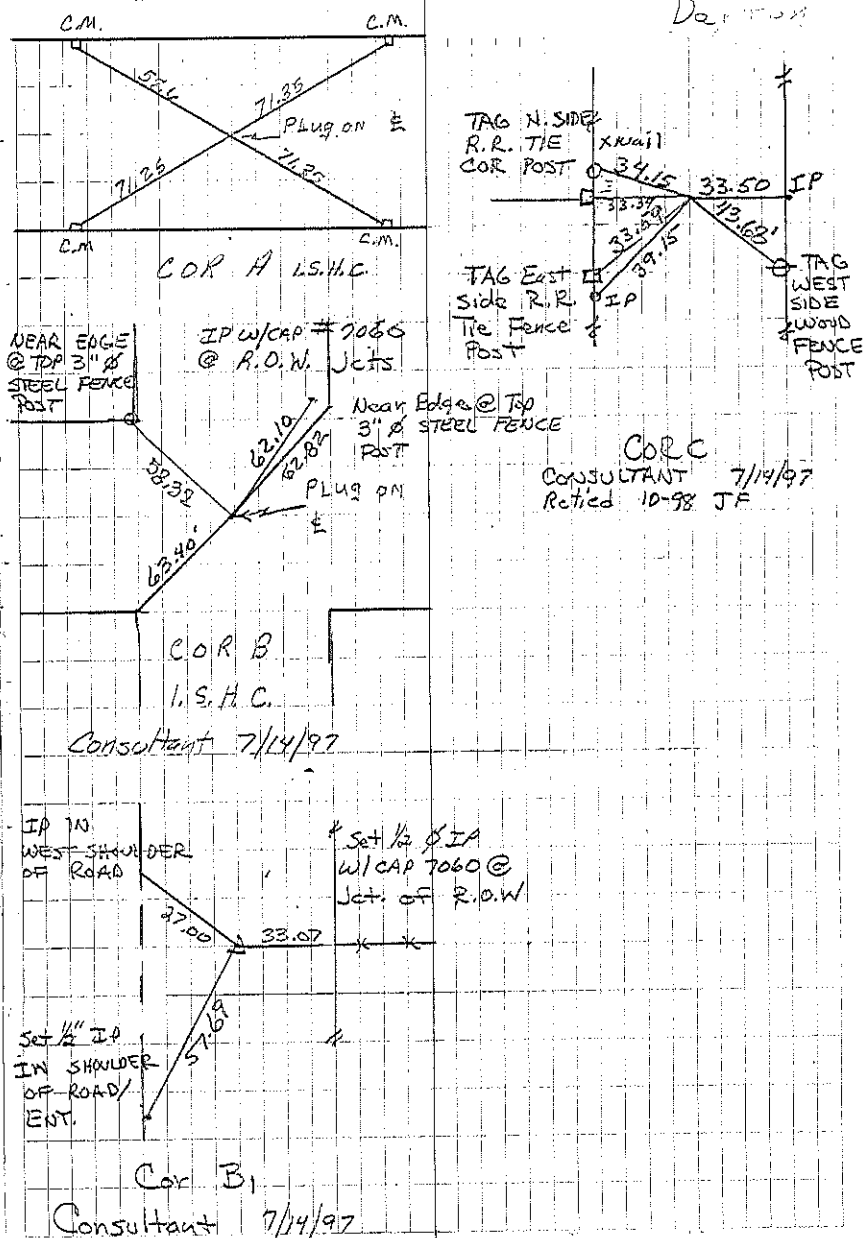 C.M.
C.M.
71.35
Plug on ℄
71.25
71.25
C.M.
C.M.
COR A I.S.H.C.
NEAR EDGE
@ TOP 3" Ø
STEEL FENCE
POST
IP W/CAP # 7060
@ R.O.W. Jcts
Near Edge @ Top
3" Ø STEEL FENCE
POST
62.10
62.82
58.32
PLUg ON
℄
63.40'
COR B
I.S.H.C.
Consultant 7/14/97
IP IN
WEST SHOULDER
OF ROAD
Set 1/2 Ø IP
W/CAP 7060 @
Jct. of R.O.W
37.00
33.07
57.69
Set 1/2" IP
IN SHOULDER
OF ROAD/
ENT.
Cor B1
Consultant 7/14/97
TAG N. SIDE
R.R. TIE
COR POST
34.15
33.50
IP
43.63'
39.15
TAG East
Side R.R.
Tie Fence
Post
IP
TAG
WEST
SIDE
WOOD
FENCE
POST
COR C
CONSULTANT 7/14/97
Retied 10-98 JF